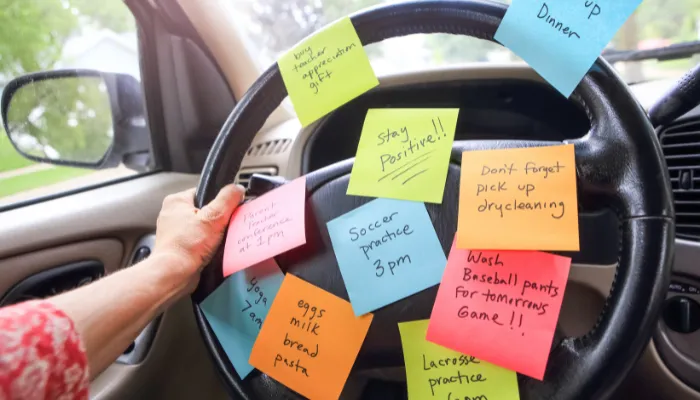 up
Dinner
buy
teacher
appreciation
gift
Stay
Positive!!
Don't forget
pick up
drycleaning
Parent
Teacher
conference
at 1 pm
Soccer
practice
3 pm
Wash
Baseball pants
For tomorrows
Game!!
Yoga
7am
eggs
milk
bread
pasta
Lacrosse
practice